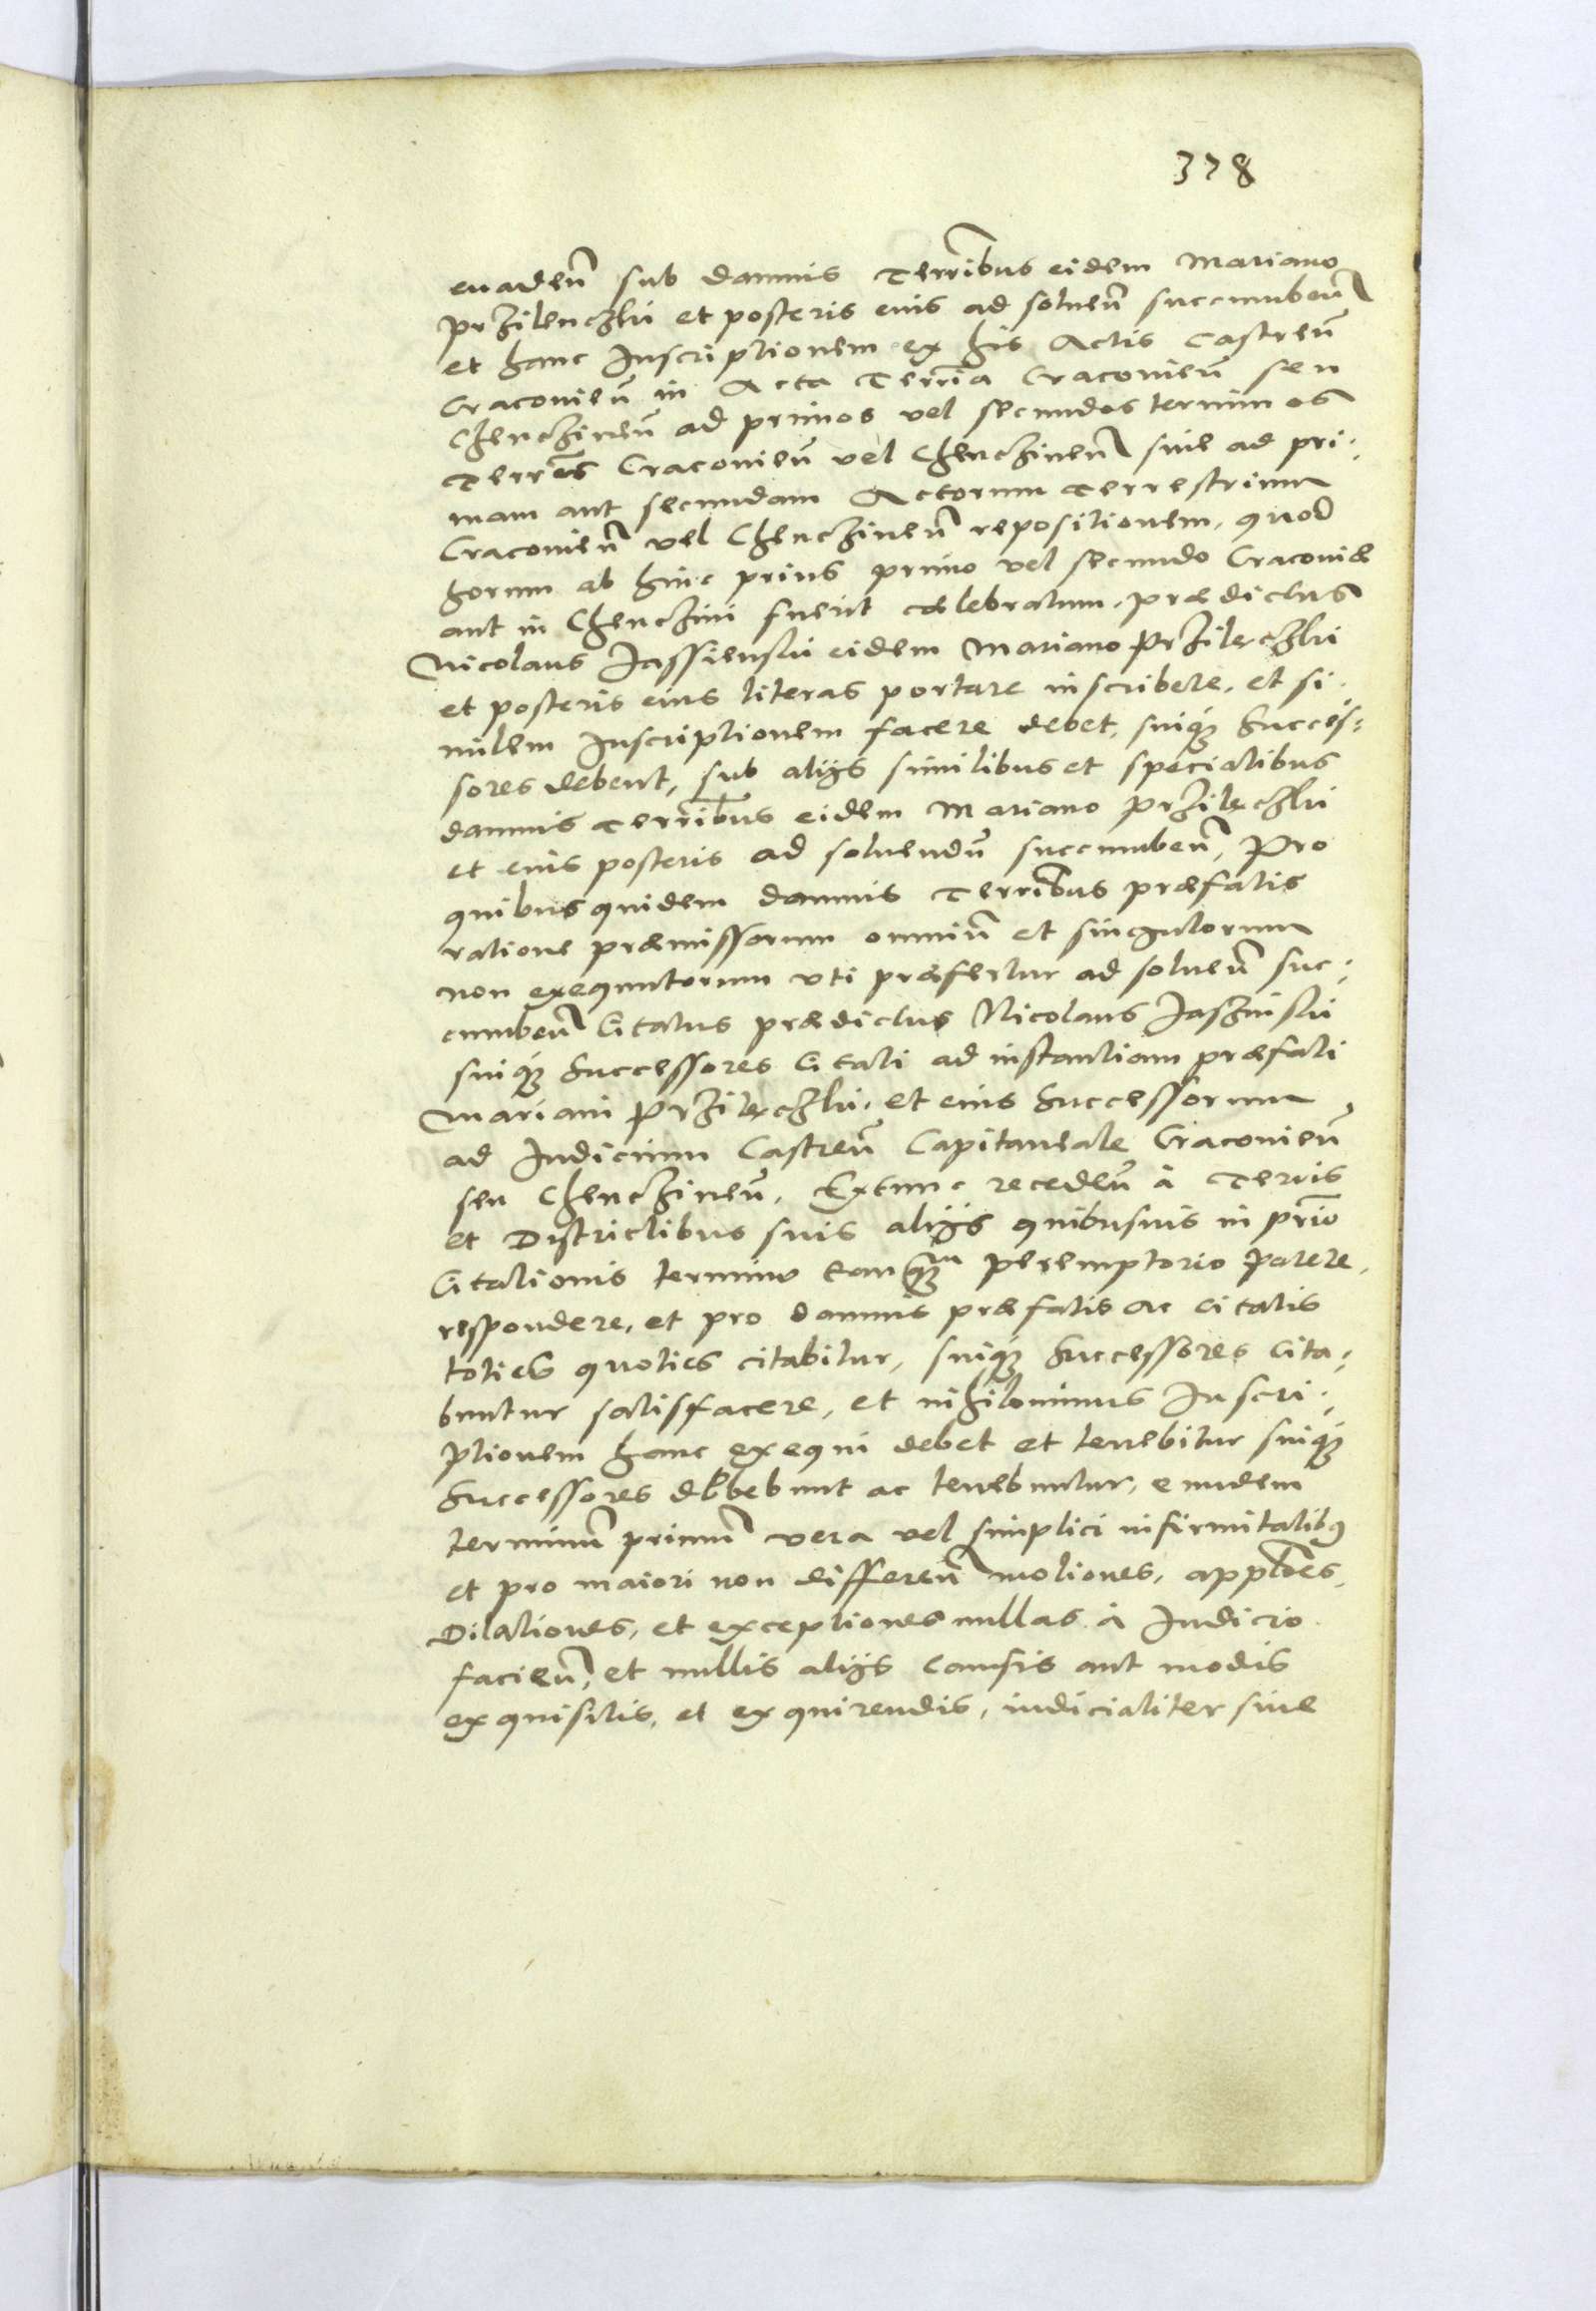 378
euadeñ sub damnis Terr̃ibus eidem Mariano
Przilenczki et posteris eius ad solueñ succumbeñ
et hanc Inscriptionem ex his Actis Castreñ
Cracouieñ in Acta Terr̃ia Cracouieñ seu
Chenczineñ ad primos vel secundos terminos
Terr̃es Cracouieñ vel Chenczineñ siue ad pri-
mam aut secundam Actorum terrestrium
Cracouieñ vel Chenczineñ repositionem, quod
horum ab hinc prius primo vel secundo Cracouiæ
aut in Chenczini fuerit cælebratum, prædictus
Nicolaus Jassienski eidem Mariano Przileczki
et posteris eius literas portare inscribere, et si-
milem Inscriptionem facere debet, suiq́ Succes-
sores debent, sub alijs similibus et specialibus
damnis terr̃ibus eidem Mariano Przileczki
et eius posteris ad soluendũ succumbeñ, Pro
quibus quidem damnis Terr̃ibus præfatis
ratione præmissorum omniũ et singulorum
non exequutorum vti præfertur ad solueñ suc-
cumbeñ Citatus prædictus Nicolaus Jaszinski
suiq́ Successores Citati ad instantiam præfati
Mariani Przileczki, et eius Successorum
ad Iudicium Castreñ Capitaneale Cracouieñ
seu Chenczineñ, Extunc recedeñ à Terris
et Districtibus suis alijs quibusuis in prĩo
Citationis termino tanq̃m peremptorio parere,
respondere, et pro damnis præfatis ac citatis
toties quoties citabitur, suiq́ Successores Cita-
buntur satisfacere, et nihilominus Inscri-
ptionem hanc exequi debet et tenebitur suiq́
Successores debebunt ac tenebuntur, eundem
terminũ primũ vera vel simplici infirmitatibq
et pro maiori non differeñ motiones, appl̃oes,
Dilationes, et exceptiones nullas à Iudicio
facieñ, et nullis alijs causis aut modis
exquisitis, et exquirendis, iudicialiter siue